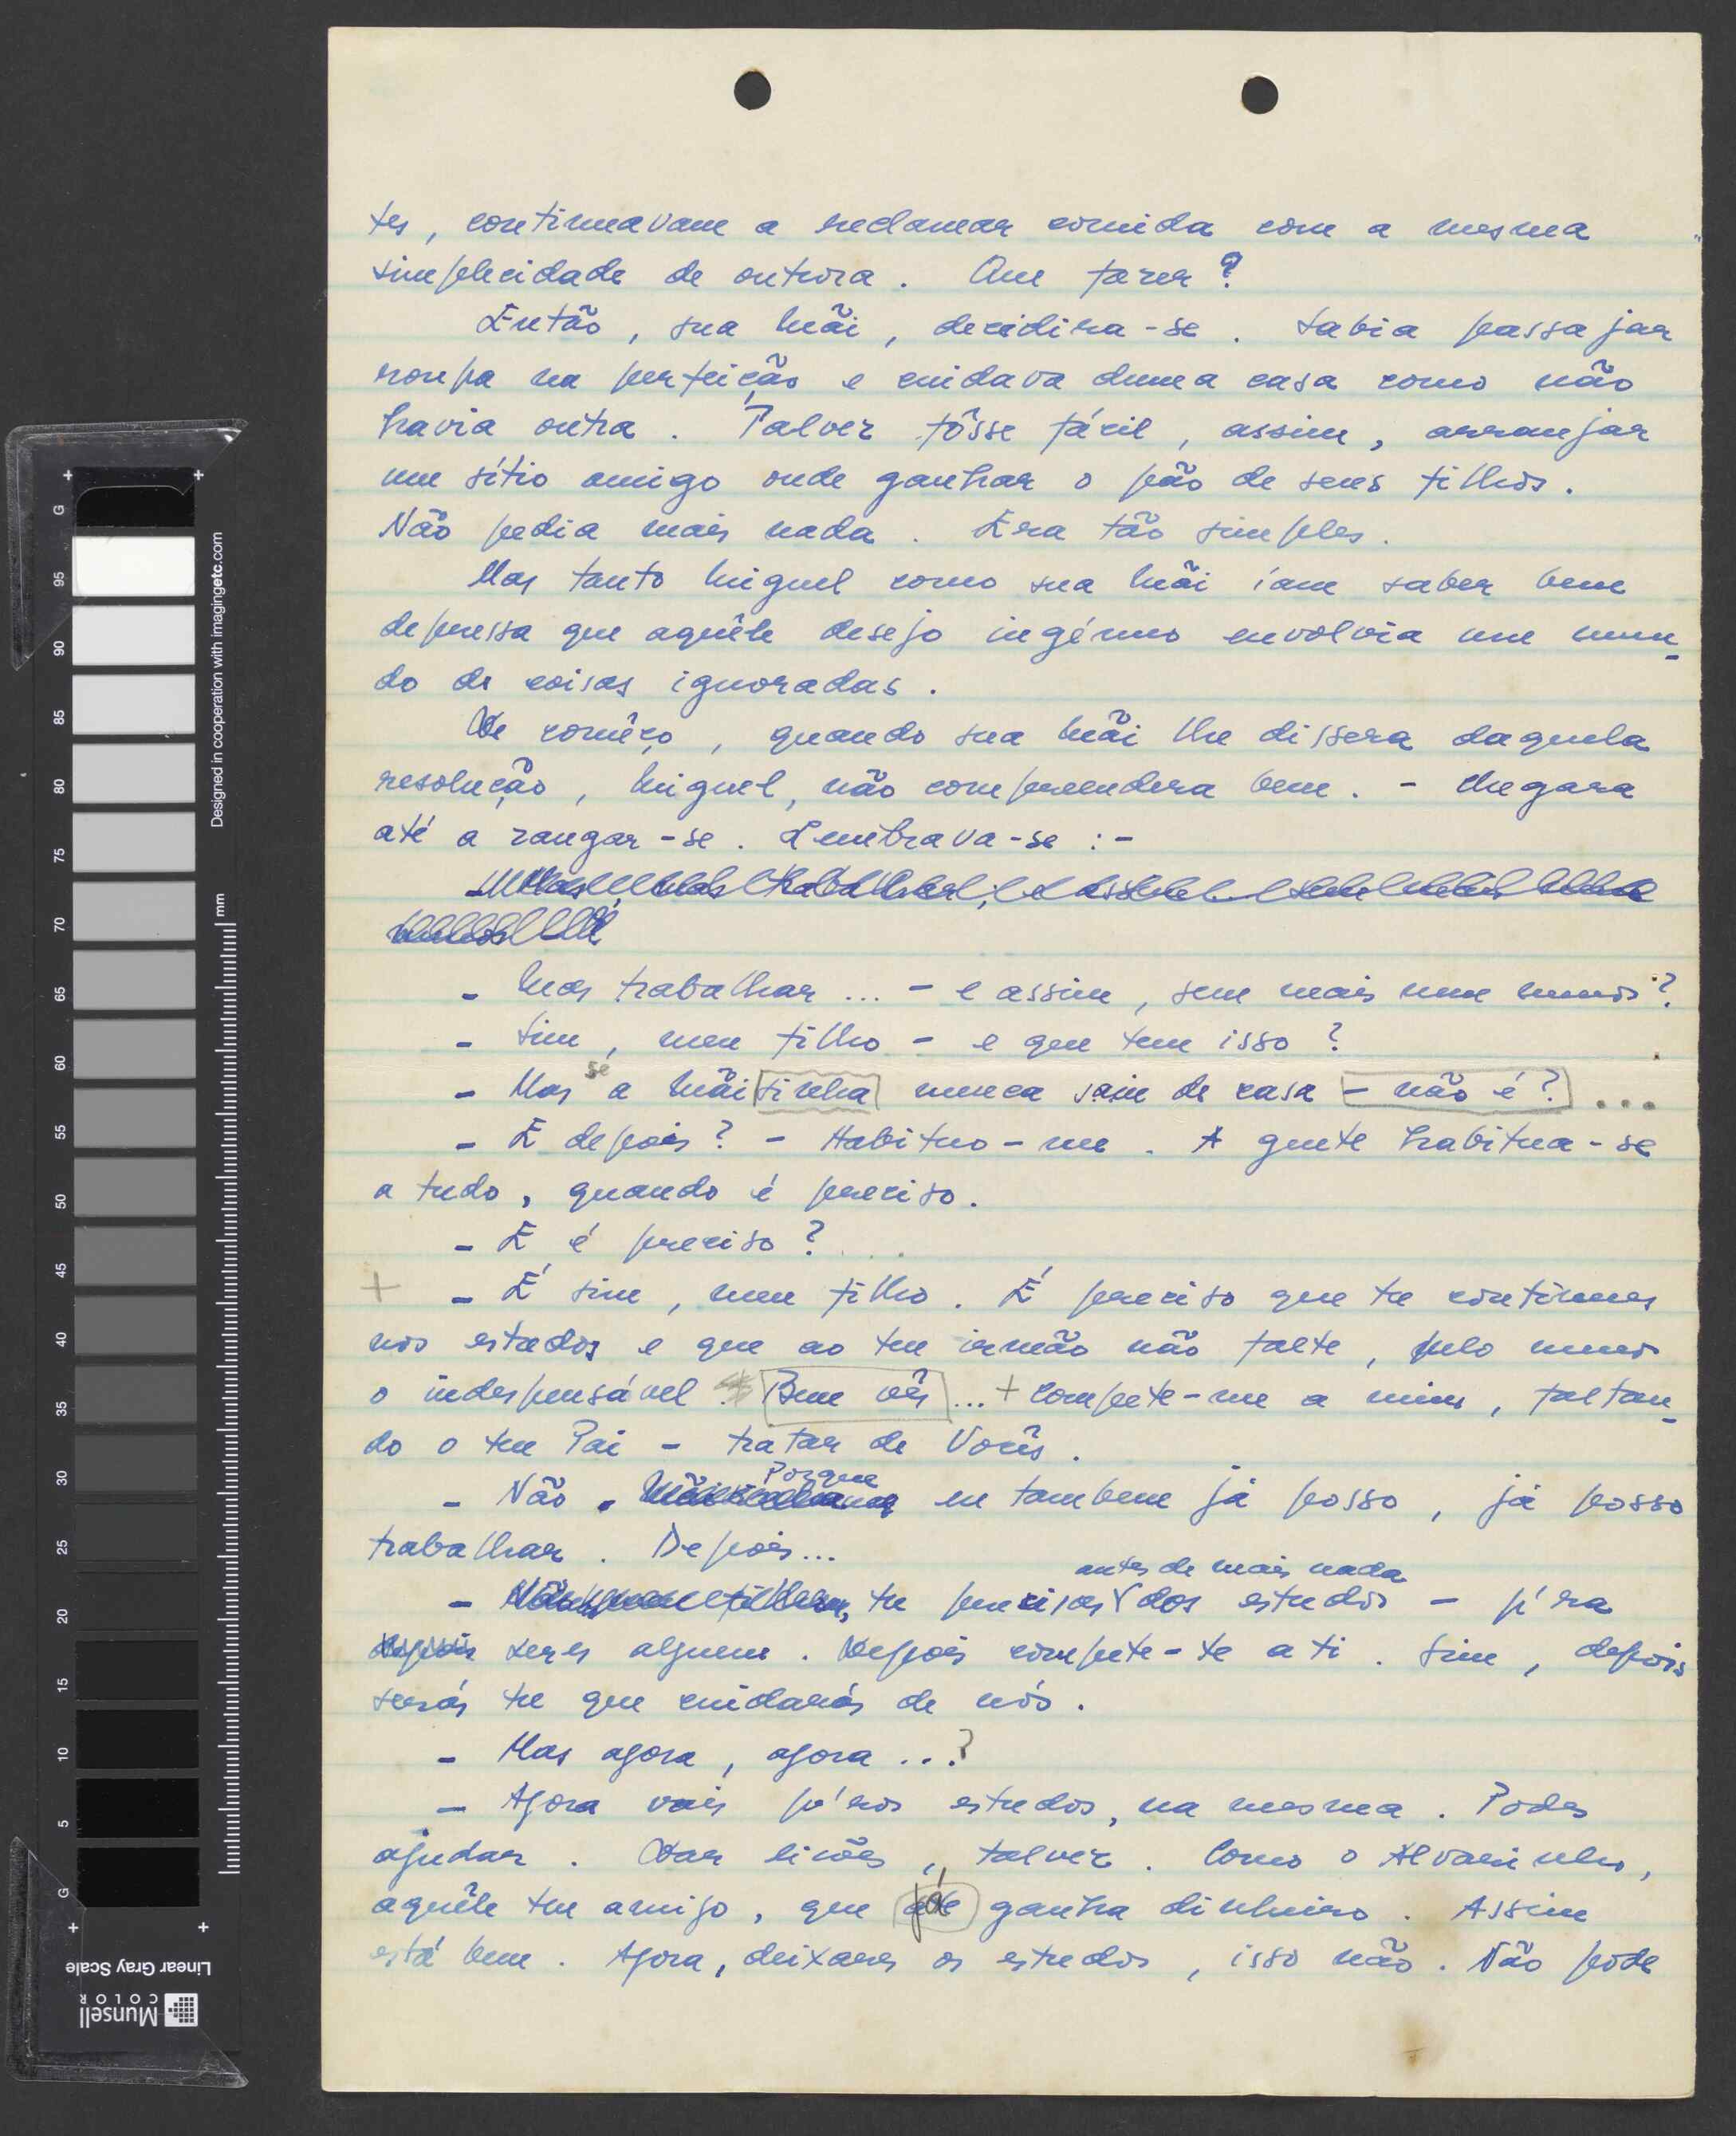 tes, continuavam a reclamar comida com a mesma
simplicidade de outrora. Que fazer?
Então, sua Mãi, decidira-se. Sabia passajar
roupa na perfeição e cuidava duma casa como não
havia outra. Talvez fôsse fácil, assim, arranjar
um sítio amigo onde ganhar o pão de seus filhos.
Não pedia mais nada. Era tão simples.
Mas tanto Miguel como sua Mãi íam saber bem
depressa que aquêle desejo ingénuo envolvia um mun-
do de coisas ignoradas.
De comêço, quando sua Mãi lhe dissera daquela
resolução, Miguel, não compreendera bem. - Chegara
até a zangar-se. Lembrava-se:-
- Mas trabalhar... - e assim, sem mais nem menos?
- Sim, meu filho - e que tem isso?
se
- Mas a Mãisinha nunca saiu de casa - não é? ...
- E depois? - Habituo-me. A gente habitua-se
a tudo, quando é preciso.
- E é preciso? ...
+ - É sim, meu filho. É preciso que tu continues
nos estudos e que ao teu irmão não falte, pelo menos
o indespensável. Bem vês... + Compete-me a mim, faltan-
do o teu Pai - tratar de Vocês.
Porque
- Não. eu tambem já posso, já posso
trabalhar. Depois...
antes de mais nada
- tu precisas dos estudos - p'ra
depois seres alguem. Depois compete-te a ti. Sim, depois
serás tu que cuidarás de nós.
- Mas agora, agora...?
- Agora vais p'ros estudos, na mesma. Podes
ajudar. Dar lições, talvez. Como o Alvarinho,
aquêle teu amigo, que já ganha dinheiro. Assim
está bem. Agora, deixares os estudos, isso não. Não pode
Designed in cooperation with imagingetc.com
mm
G 95 90 85 80 75 70 65 60 55 50 45 40 35 30 25 20 15 10 5 G
Linear Gray Scale
Munsell
COLOR